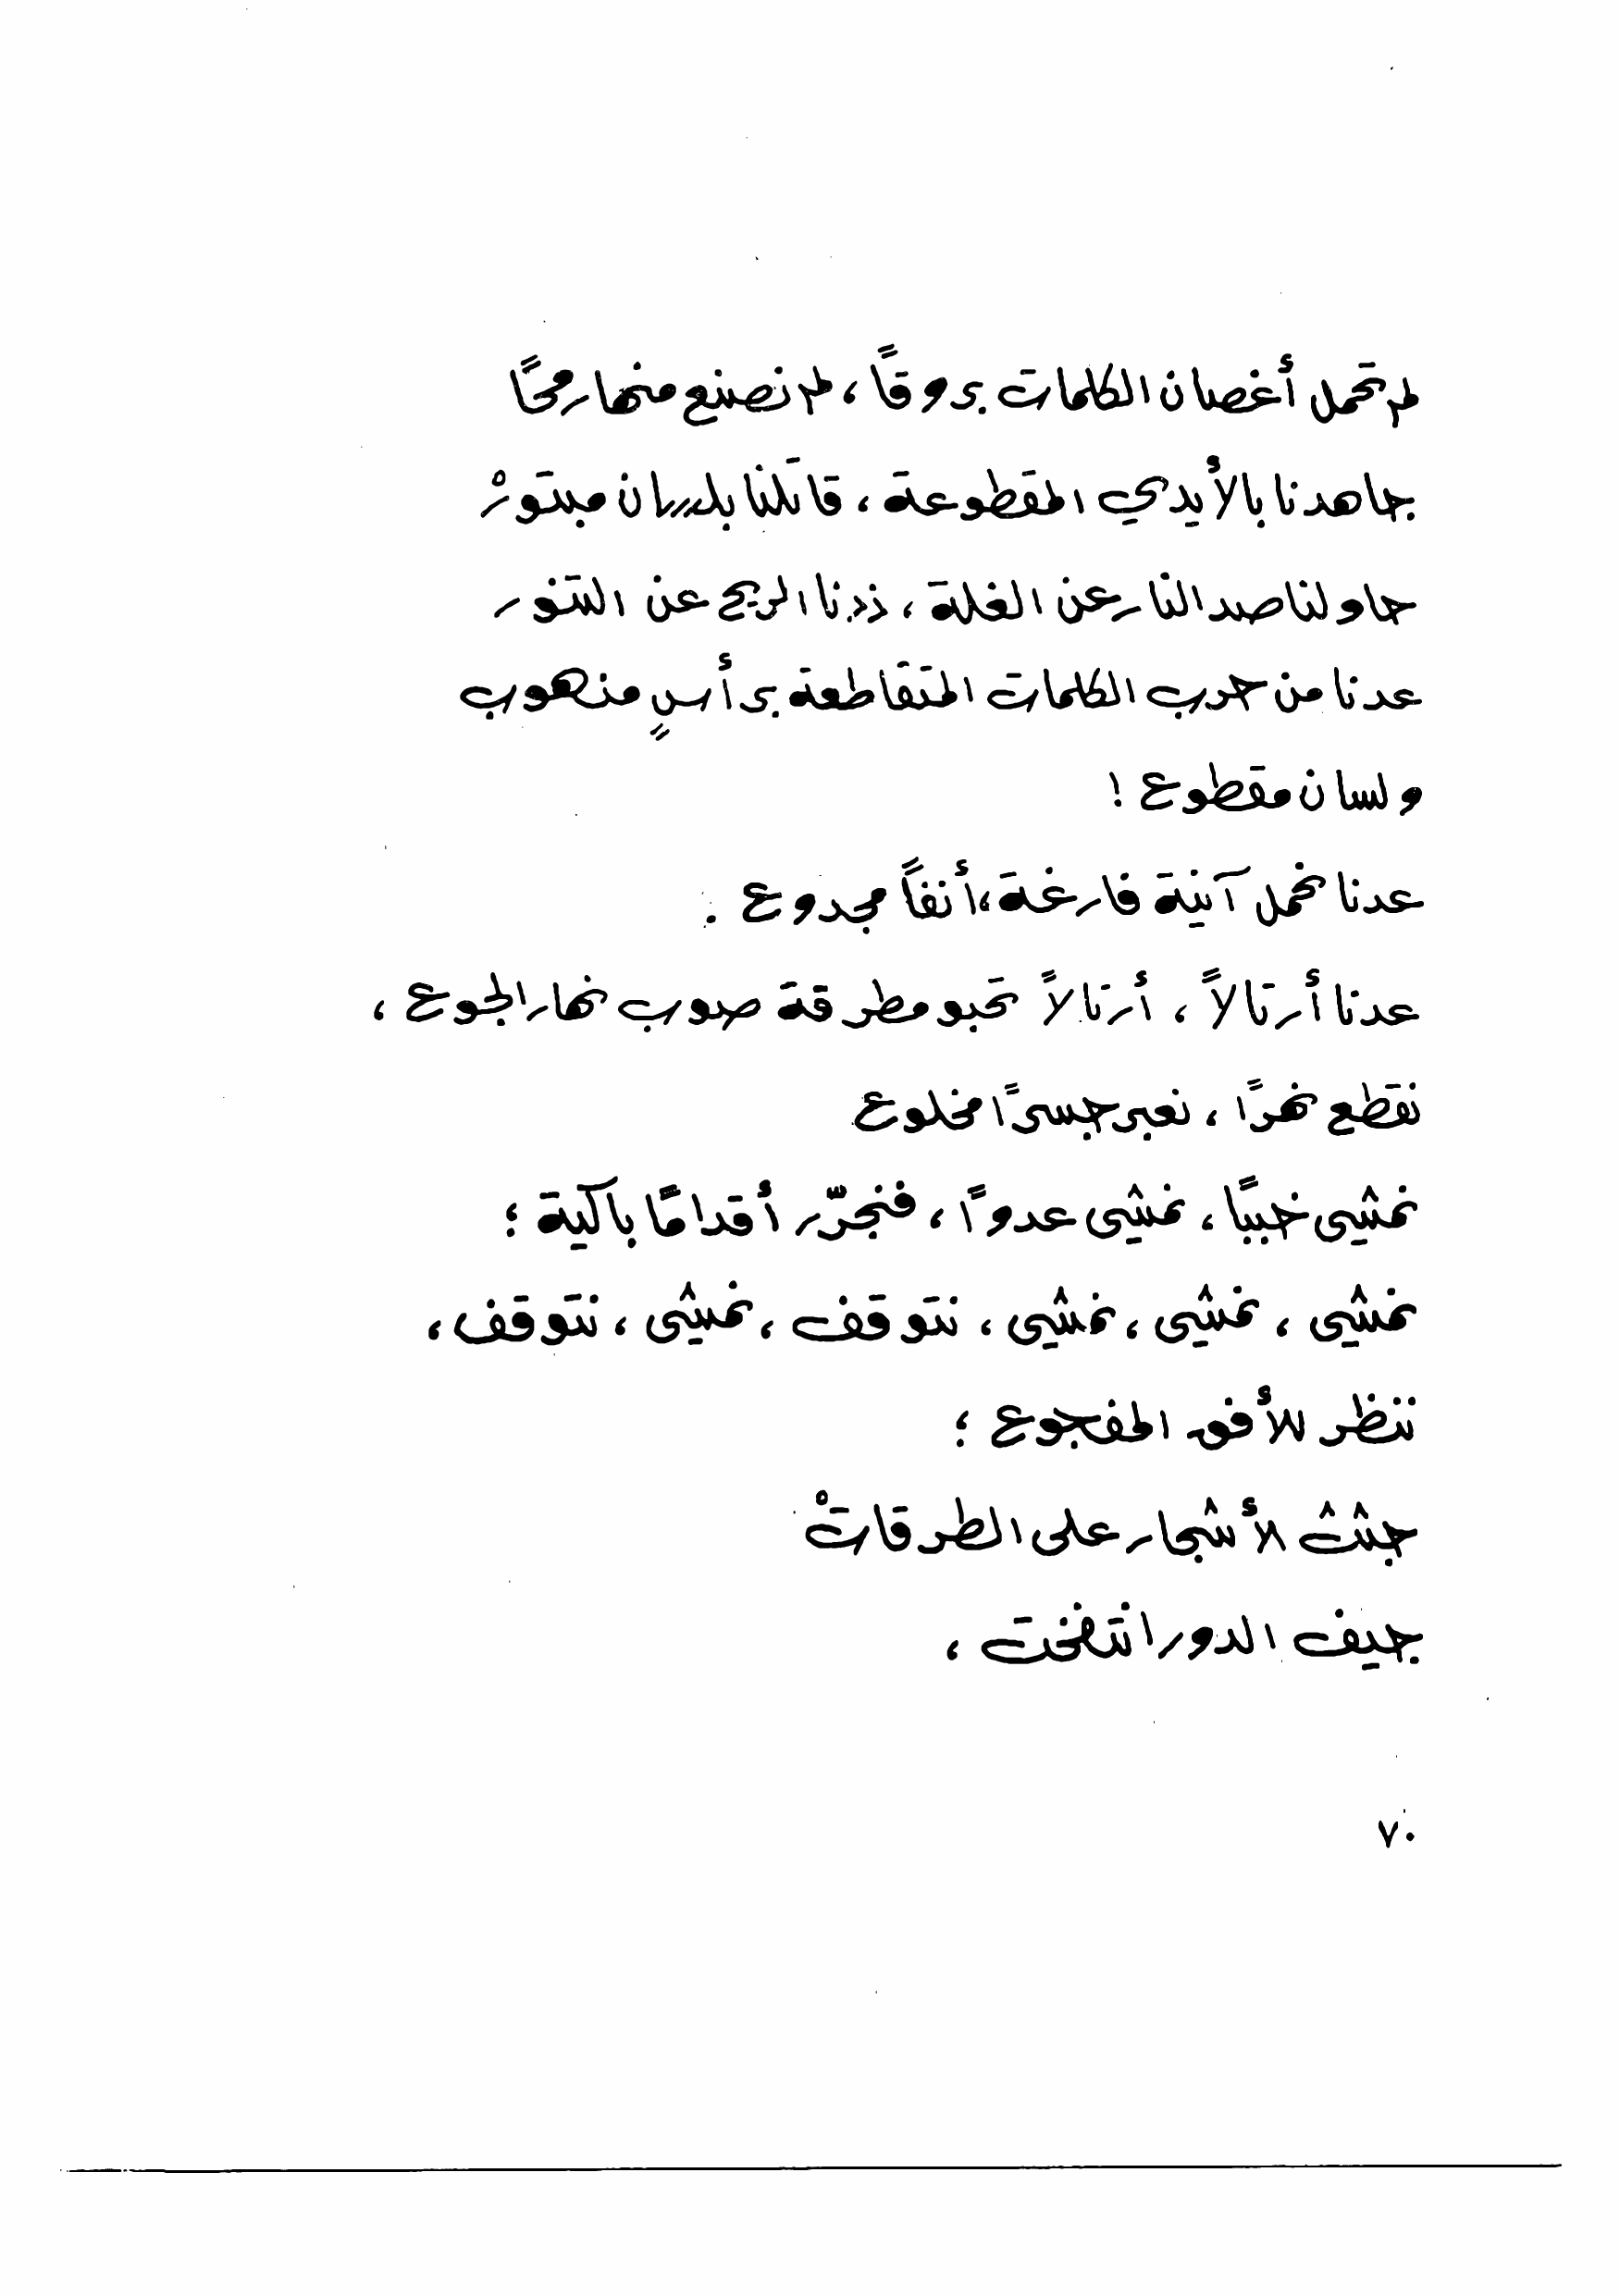 لم تحمل أغصان الكلمات بروقاً ، لم نصنع منها رمحًا
جاهدنا بالأيدي المقطوعة ، قاتلنا بلسان مبتورْ
حاولنا صد النار عن الغلة ، ذدنا الريح عن التنور
عدنا من حرب الكلمات المتقاطعة برأسٍ منهوب
ولسان مقطوع !
عدنا نحمل آنية فارغة ، أنفاً مجدوع .
عدنا أرتالاً ، أرتالاً تحبو مطرقة صوب نهار الجوع ،
نقطع نهرًا ، نعبر جسرًا مخلوع
نمشي خببًا ، نمشي عدوًا ، فنجرّر أقدامًا باكية ؛
نمشي ، نمشي ، نمشي ، نتوقف ، نمشي ، نتوقف ،
ننظر للأفق المفجوع ؛
جثث الأشجار على الطرقاتْ
جيف الدور انتفخت ،
٧٠